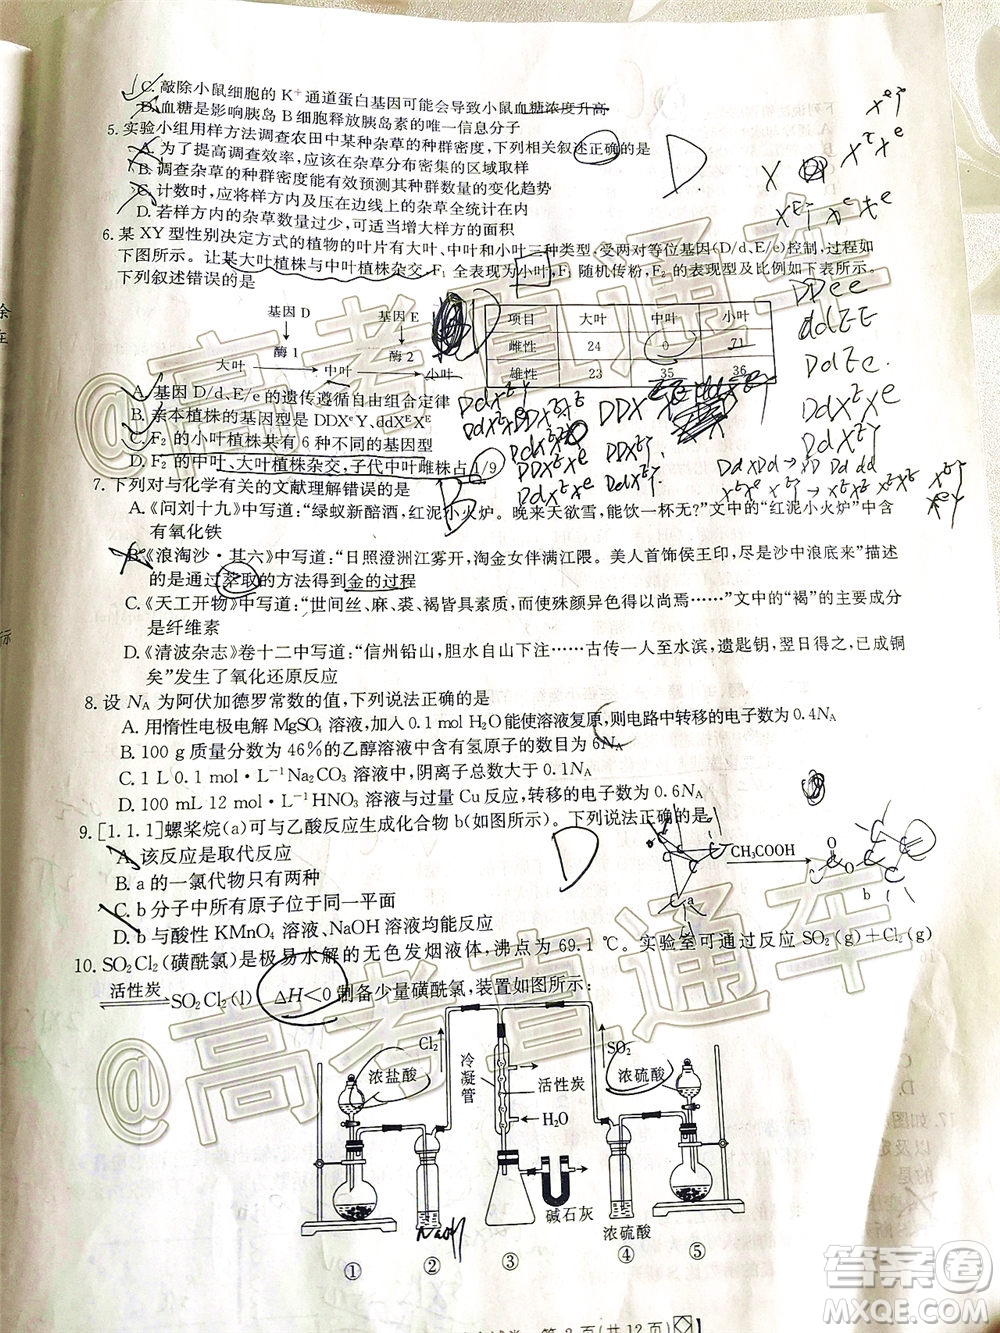 C. 敲除小鼠细胞的 K⁺ 通道蛋白基因可能会导致小鼠血糖浓度升高
D. 血糖是影响胰岛 B 细胞释放胰岛素的唯一信息分子
5. 实验小组用样方法调查农田中某种杂草的种群密度，下列相关叙述正确的是
A. 为了提高调查效率，应该在杂草分布密集的区域取样
B. 调查杂草的种群密度能有效预测其种群数量的变化趋势
C. 计数时，应将样方内及压在边线上的杂草全统计在内
D. 若样方内的杂草数量过少，可适当增大样方的面积
D
6. 某 XY 型性别决定方式的植物的叶片有大叶、中叶和小叶三种类型，受两对等位基因(D/d、E/e)控制，过程如
下图所示。让某大叶植株与中叶植株杂交，F₁ 全表现为小叶，F₁ 随机传粉，F₂ 的表现型及比例如下表所示。
下列叙述错误的是
基因 D 基因 E
酶 1 酶 2
大叶 中叶 小叶
项目 大叶 中叶 小叶
雌性 24 0 71
雄性 23 35 36
A. 基因 D/d、E/e 的遗传遵循自由组合定律
B. 亲本植株的基因型是 DDXᵉY、ddXᴱXᴱ
C. F₂ 的小叶植株共有 6 种不同的基因型
D. F₂ 的中叶、大叶植株杂交，子代中叶雌株占 1/9
7. 下列对与化学有关的文献理解错误的是
B
A.《问刘十九》中写道：“绿蚁新醅酒，红泥小火炉。晚来天欲雪，能饮一杯无？”文中的“红泥小火炉”中含
有氧化铁
B.《浪淘沙·其六》中写道：“日照澄洲江雾开，淘金女伴满江隈。美人首饰侯王印，尽是沙中浪底来”描述
的是通过萃取的方法得到金的过程
C.《天工开物》中写道：“世间丝、麻、裘、褐皆具素质，而使殊颜异色得以尚焉……”文中的“褐”的主要成分
是纤维素
D.《清波杂志》卷十二中写道：“信州铅山，胆水自山下注……古人一至水滨，遗匙钥，翌日得之，已成铜
矣”发生了氧化还原反应
8. 设 Nᴀ 为阿伏加德罗常数的值，下列说法正确的是
A. 用惰性电极电解 MgSO₄ 溶液，加入 0.1 mol H₂O 能使溶液复原，则电路中转移的电子数为 0.4Nᴀ
B. 100 g 质量分数为 46％的乙醇溶液中含有氢原子的数目为 6Nᴀ
C. 1 L 0.1 mol·L⁻¹ Na₂CO₃ 溶液中，阴离子总数大于 0.1Nᴀ
D. 100 mL 12 mol·L⁻¹ HNO₃ 溶液与过量 Cu 反应，转移的电子数为 0.6Nᴀ
9. [1.1.1]螺桨烷(a)可与乙酸反应生成化合物 b(如图所示)。下列说法正确的是
A. 该反应是取代反应
B. a 的一氯代物只有两种
C. b 分子中所有原子位于同一平面
D. b 与酸性 KMnO₄ 溶液、NaOH 溶液均能反应
D
CH₃COOH
a
b
10. SO₂Cl₂(磺酰氯)是极易水解的无色发烟液体，沸点为 69.1 ℃。实验室可通过反应 SO₂(g)＋Cl₂(g)
活性炭 SO₂Cl₂(l) ΔH<0 制备少量磺酰氯，装置如图所示：
Cl₂ SO₂
浓盐酸 冷凝管 活性炭 浓硫酸
H₂O
碱石灰 浓硫酸
NaOH
① ② ③ ④ ⑤
第 2 页(共 12 页)
@高考直通车
@高考直通车
答案圈
MXQE.COM